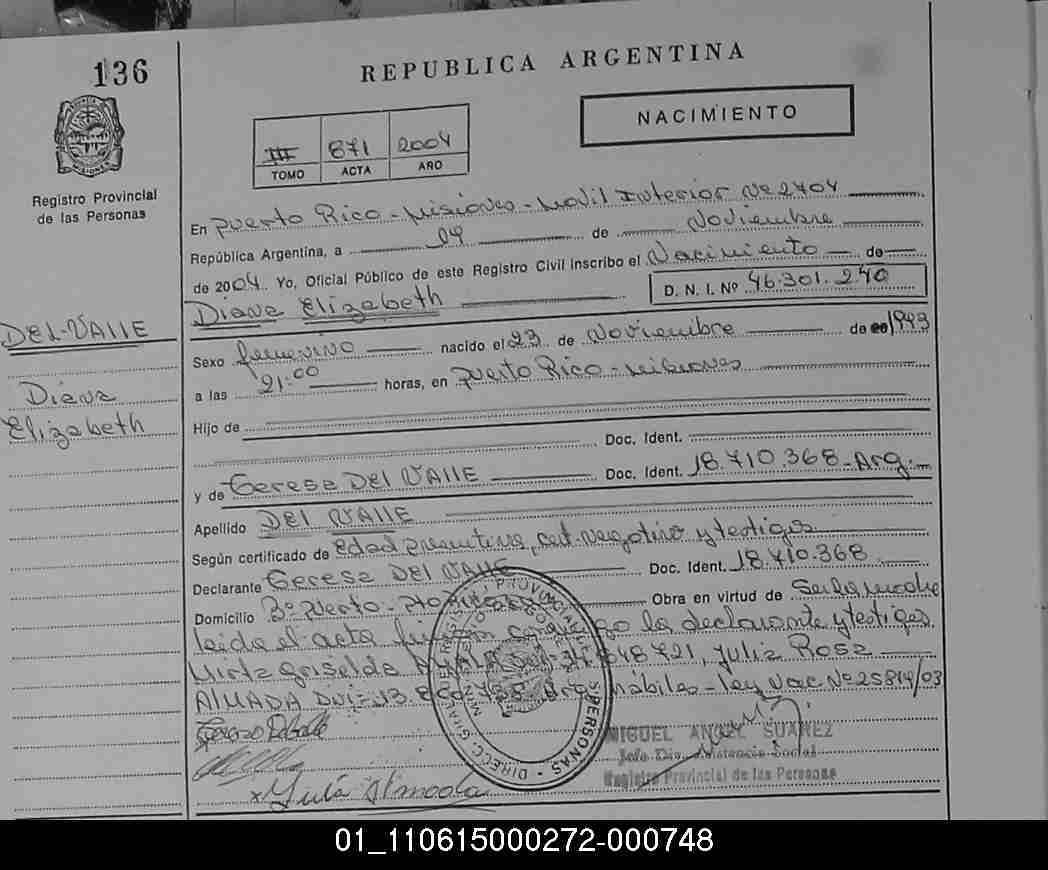 136
REPUBLICA ARGENTINA
NACIMIENTO
III 871 2004
TOMO ACTA AÑO
Registro Provincial
de las Personas
En Puerto Rico - Misiones - Movil Interior Nº 2404
República Argentina, a 04 de Noviembre
de 2004 Yo, Oficial Público de este Registro Civil Inscribo el Nacimiento de
Diana Elizabeth D. N. I. Nº 46.301.240
DEL VALLE
Diana
Elizabeth
Sexo femenino nacido el 23 de Noviembre de 1993
a las 21:00 horas, en Puerto Rico - Misiones
Hijo de
Doc. Ident.
y de Teresa DEL VALLE Doc. Ident. 18.710.368 - Arg.
Apellido DEL VALLE
Según certificado de edad presuntiva, cert. negativo y testigos
Declarante Teresa DEL VALLE Doc. Ident. 18.710.368
Domicilio Bº Puerto - Pto Rico Obra en virtud de Ser la madre
leida el acta firman conmigo la declarante y testigos
Mirta Griselda 848721, Julia Rosa
ALMADA DNI: 13 hábiles - ley Nac Nº 25819/03
x Julia Almada
MIGUEL ANGEL SUAREZ
Jefe Div. Asistencia Social
Registro Provincial de las Personas
PROVINCIAL PERSONAS - DIRECC.
01_110615000272-000748